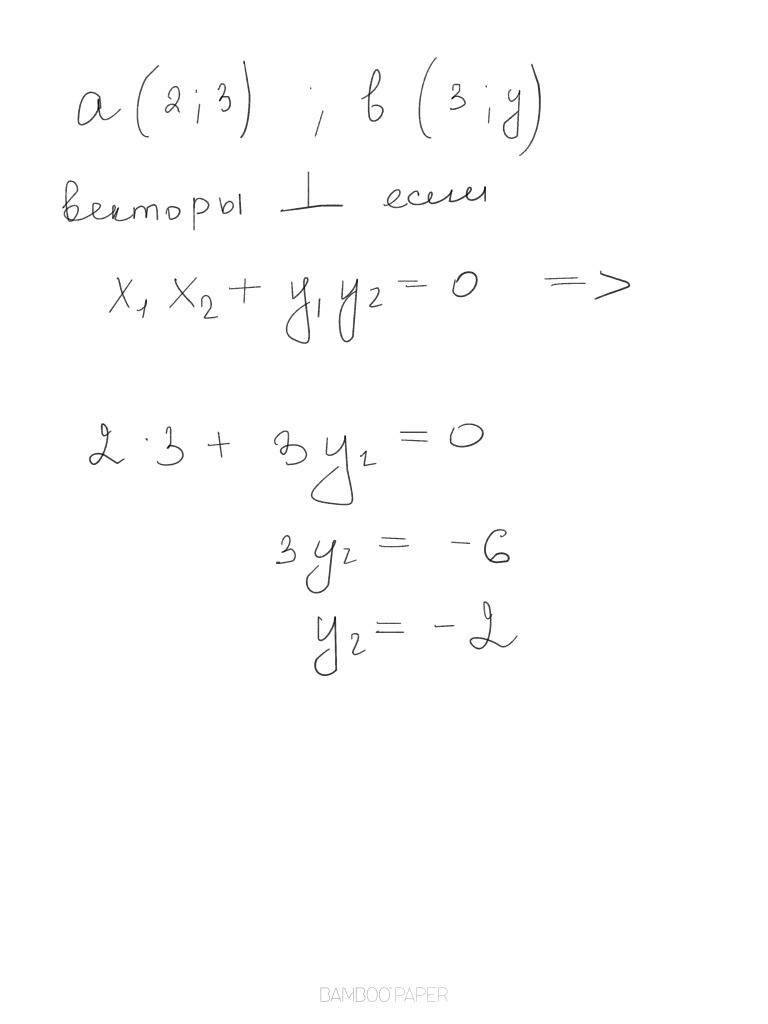 a (2;3) ; в (3;y)
векторы ⊥ если
x₁ x₂ + y₁ y₂ = 0 =>
2 · 3 + 3 y₂ = 0
3 y₂ = - 6
y₂ = - 2
BAMBOO PAPER